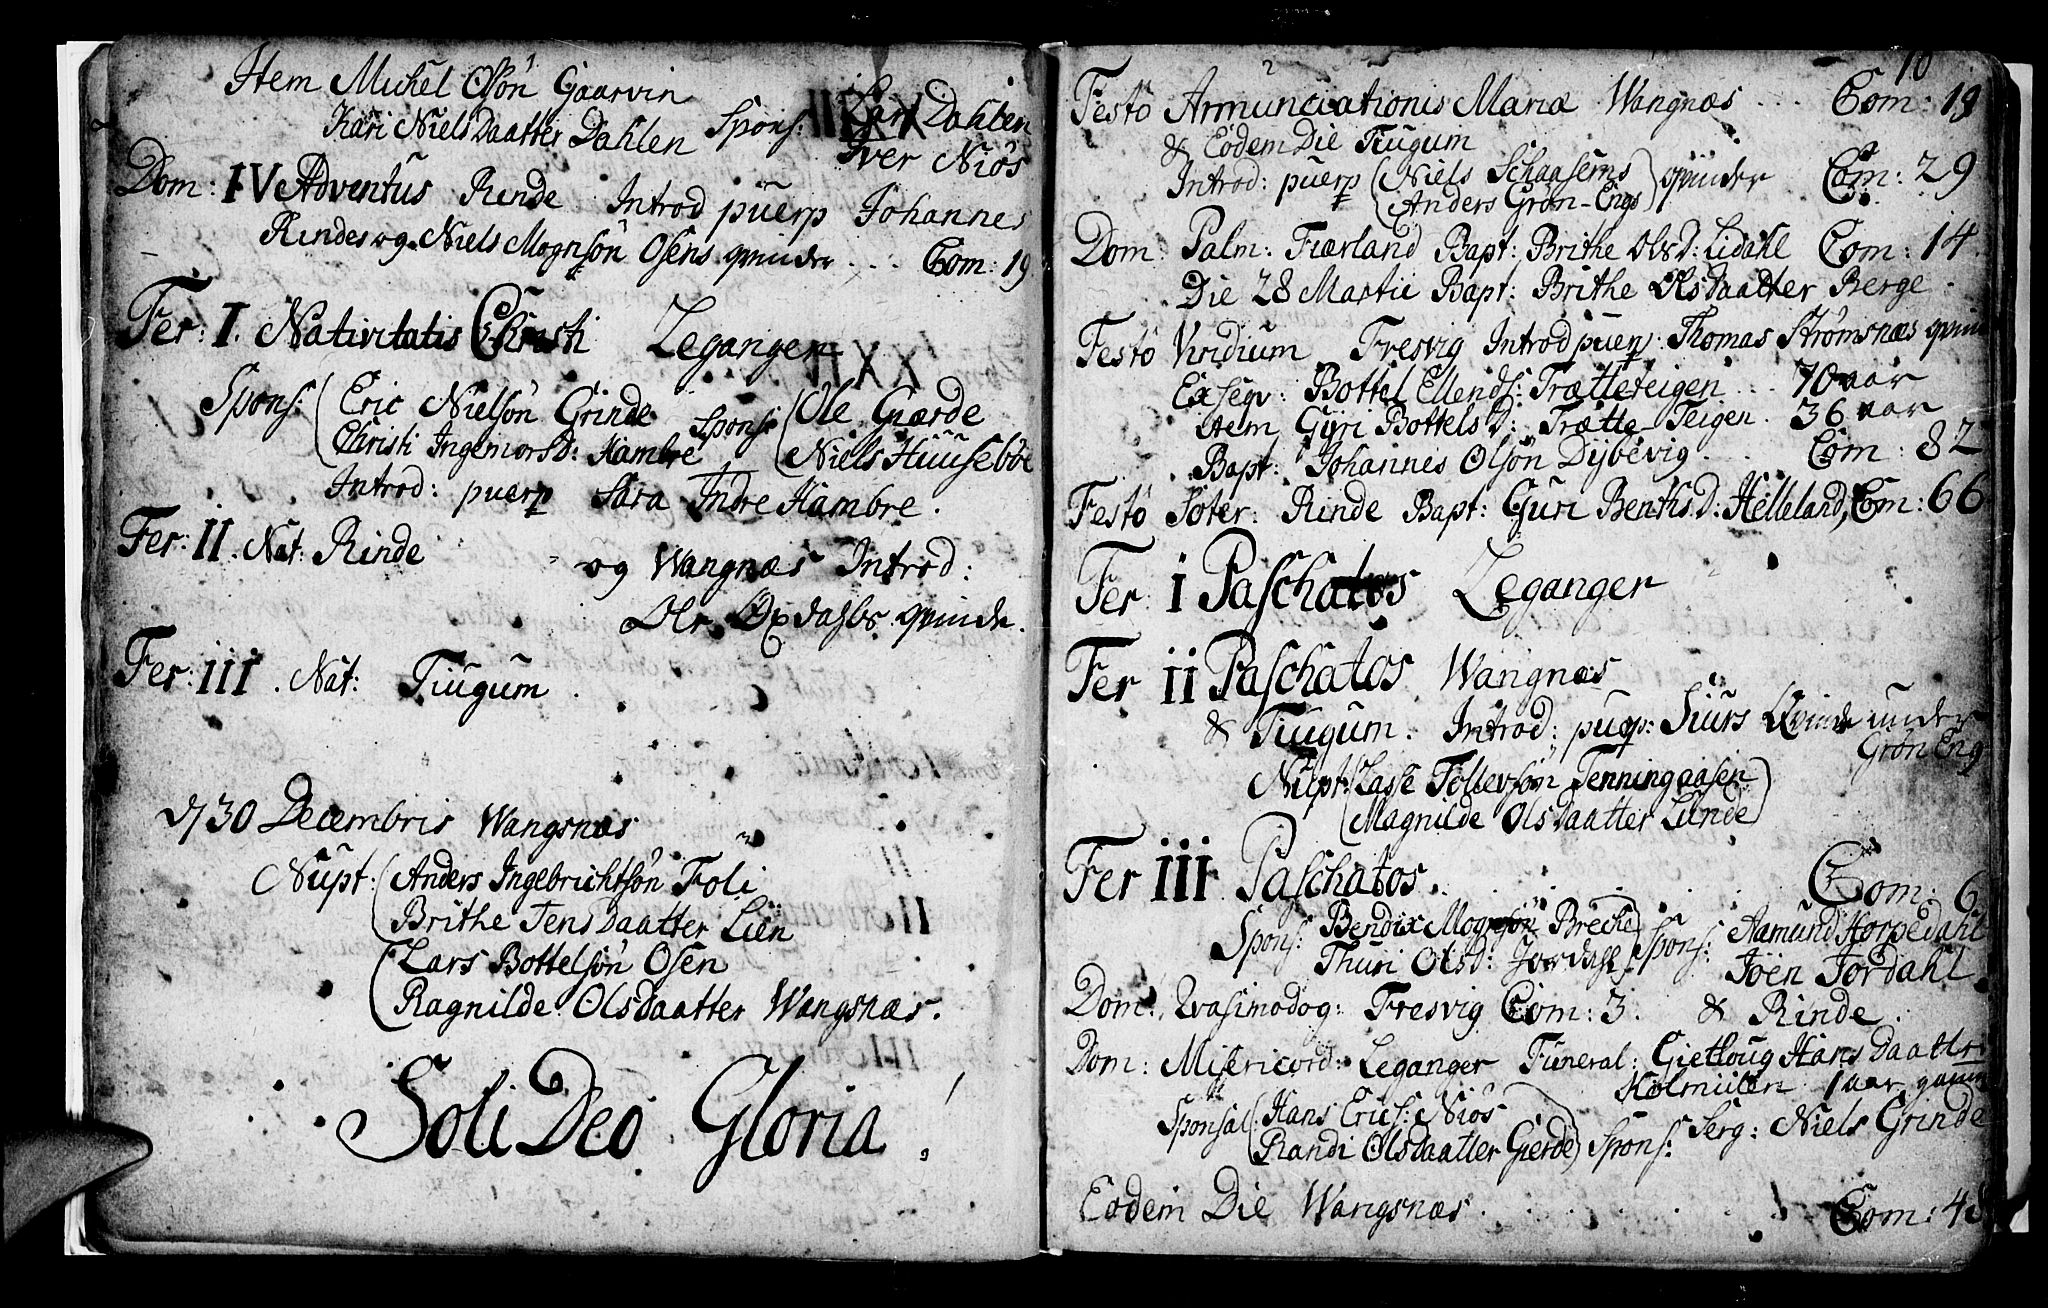 Item Michel Olsön Gaarvin
Kari Niels Daatter Dahlen Spons: Lars Dahlen
Iver Niös
Dom: IV Adventus Rinde Introd puerp Johannes
Rindes og Niels Mognsön Osens qvinder ... Com: 19
Fer: I. Nativitatis Christi Leganger
Spons: Eric Nielsön Grinde Spons: Ole Gierde
Christi Ingemors D: Hambre Niels Huuseböe
Introd: puerp Sara Indre Hambre.
Fer: II. Nat: Rinde og Wangnæs Introd:
Ole Opdahls qvinde.
Fer: III. Nat: Tiugum.
d/30 Decembris Wangsnæs
Nupt: Anders Ingebrichtsön Foli
Brithe Jens Daatter Lien
Lars Bottelsön Osen
Ragnilde Olsdaatter Wangsnæs.
Soli Deo Gloria!
10
Festo Annunciationis Mariæ Wangnæs ... Com: 19
& Eodem Die Tiugum
Introd: puerp (Niels Schaasems) qvinder Com: 29
(Anders Grön-Engs)
Dom Palm: Fiærland Bapt: Brithe Ols D: Lidahl Com: 14
Die 28 Martii Bapt: Brithe Olsdaatter Berge.
Festo Viridium Fresvig Introd puerp: Thomas Strömsnæs qvinde
Exseqv: Bottel Ellends: Trætteteigen .. 70 aar
Item Guri Bottels D: Trætte-Teigen. 36 aar
Bapt: Johannes Olsön Dybevig. Com: 82
Festo Soter: Rinde Bapt: Guri Bentis D: Helleland, Com: 66
Fer i Paschatos Leganger
Fer ii Paschatos Wangnæs
& Tiugum. Introd: puerp: Siurs Qvinde under
Grön Eng
Nupt: (Lasse Tollevsön Tenningaasen
Magnilde Olsdaatter Lunde)
Fer III Paschatos. Com: 6
Spons: Bendix Mognsön Breche Spons: Aamund Horpedahl
Thuri Ols D: Jordahl Joen Jordahl
Dom: Qvasimodog: Fresvig Com: 3. & Rinde.
Dom: Misericord: Leganger Funeral: Gietloug Hans Daatter
Holmulen 1 aar gamm
Sponsal: (Hans Erics: Niös
Randi Olsdaatter Gierde) Spons: Serg: Niels Grinde
Eodem Die Wangsnæs. Com: 48